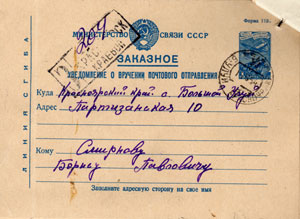 Форма 119
204
МИНИСТЕРСТВО СВЯЗИ СССР
ЗАКАЗНОЕ
УВЕДОМЛЕНИЕ О ВРУЧЕНИИ ПОЧТОВОГО ОТПРАВЛЕНИЯ
Куда Красноярский край с. Большой
Адрес Партизанская 10
Кому Смирнову
Борису Павловичу
Заполните адресную сторону на свое имя
ЛИНИЯ СГИБА